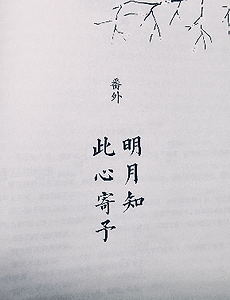 番外
明月知
此心寄予